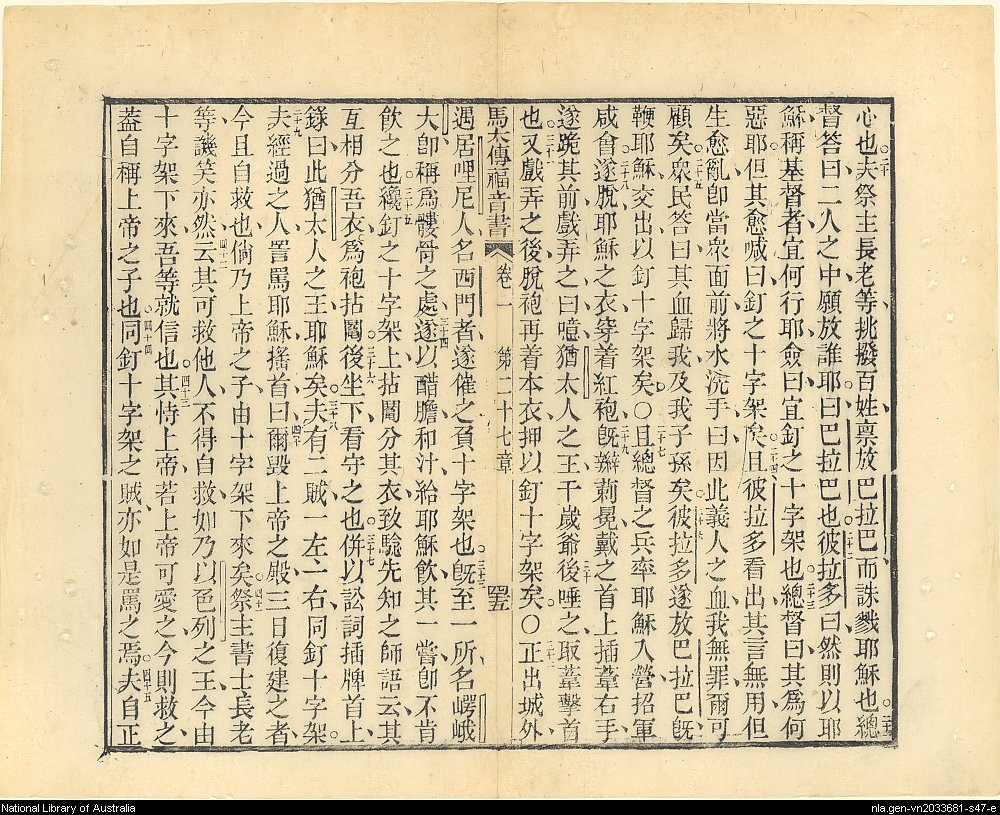 心也。二十夫祭主長老等挑撥百姓禀放巴拉巴而誅戮耶穌也。二十一總
督答曰二人之中願放誰耶曰巴拉巴也。二十二彼拉多曰然則以耶
穌稱基督者宜何行耶僉曰宜釘之十字架也。二十三總督曰其爲何
惡耶但其愈喊曰釘之十字架矣。二十四且彼拉多看出其言無用但
生愈亂卽當衆面前將水洗手曰因此義人之血我無罪爾可
顧矣。二十五衆民答曰其血歸我及我子孫矣。二十六彼拉多遂放巴拉巴旣
鞭耶穌交出以釘十字架矣○二十七且總督之兵率耶穌入營招軍
咸會。二十八遂脫耶穌之衣穿着紅袍。二十九旣辮萴冕戴之首上插葦右手
遂跪其前戲弄之曰噫猶太人之王千歲爺。三十後唾之取葦擊首
也。三十一又戲弄之後脫袍再着本衣押以釘十字架矣○三十二正出城外
馬太傳福音書 卷一 第二十七章 四五
遇居哩尼人名西門者遂催之負十字架也。三十三旣至一所名崿峨
大卽稱爲髏骨之處。三十四遂以醋膽和汁給耶穌飲其一嘗卽不肯
飲之也。三十五纔釘之十字架上拈鬮分其衣致騐先知之師語云其
互相分吾衣爲袍拈鬮。三十六後坐下看守之也。三十七併以訟詞插牌首上
錄曰此猶太人之王耶穌矣。三十八夫有二賊一左一右同釘十字架。
三十九夫經過之人詈罵耶穌搖首曰。四十爾毀上帝之殿三日復建之者
今且自救也倘乃上帝之子由十字架下來矣。四十一祭主書士長老
等譏笑亦然。四十二云其可救他人不得自救如乃以色列之王今由
十字架下來吾等就信也。四十三其恃上帝若上帝可愛之今則救之
蓋自稱上帝之子也。四十四同釘十字架之賊亦如是罵之焉。四十五夫自正
National Library of Australia
nla.gen-vn2033681-s47-e